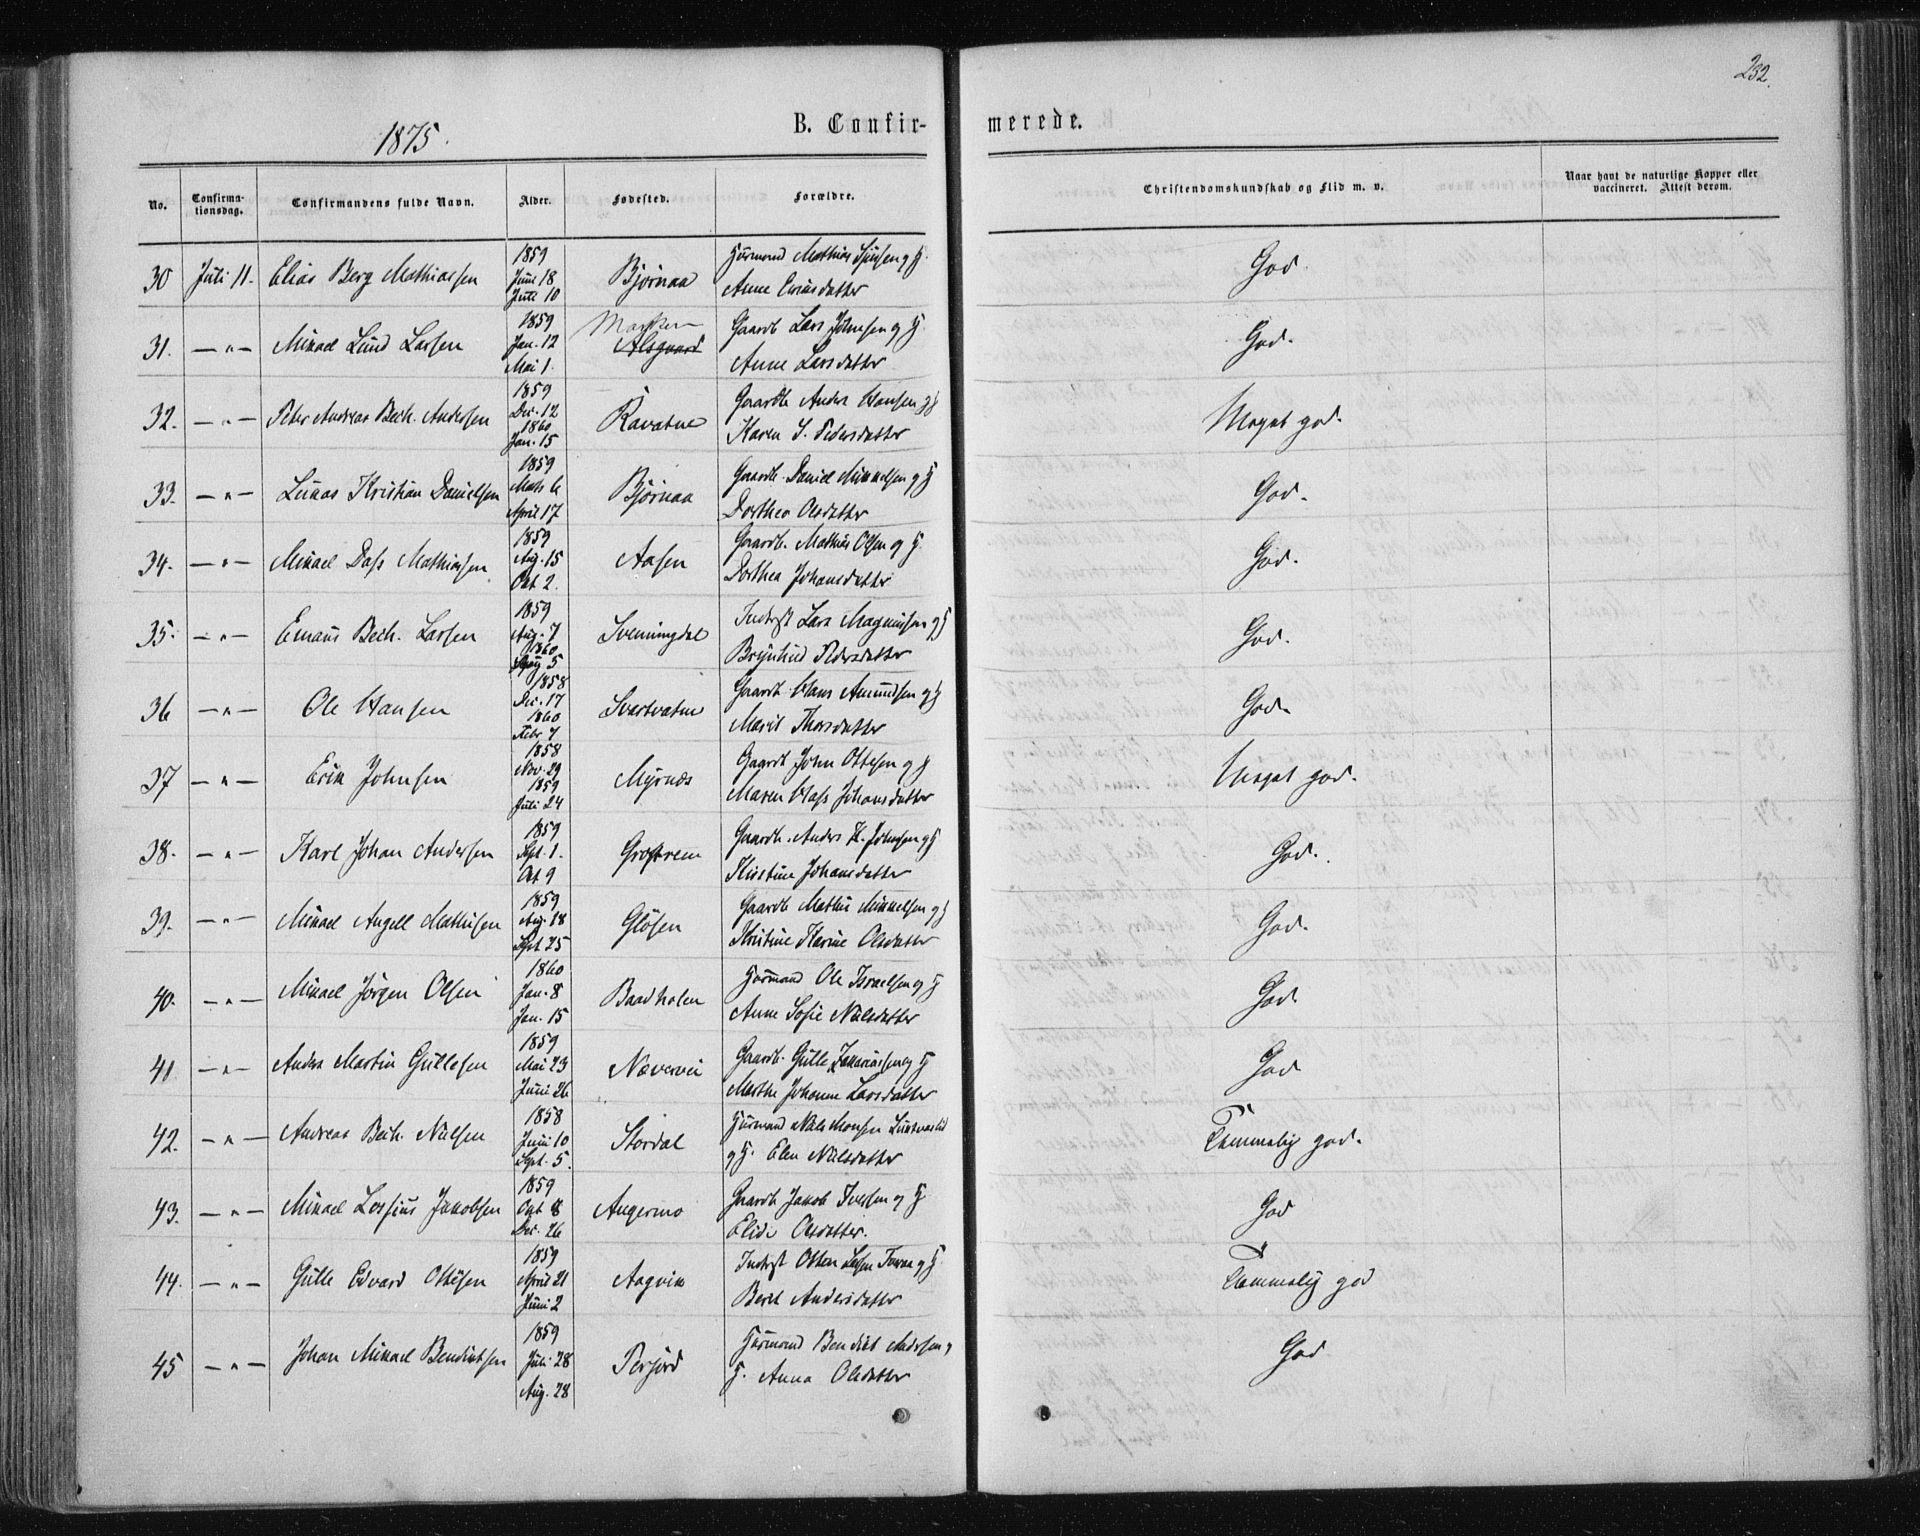 232.
1875.
B. Confir-
merede.
No.
Confirma-
tionsdag.
Confirmandens fulde Navn.
Alder.
Fødested.
Forældre.
Christendomskundskab og Flid m. v.
Naar havt de naturlige Kopper eller
vaccineret. Attest derom.
30 Juli 11. Elias Berg Mathiassen 1859 Juni 18 Juli 10 Bjørnaa
Anne
God.
31. — " — Mikael Lund Larsen 1859 Jan. 12 Mai 1. Alsgaard
Gaardb Lars Johnsen og H.
Anne Larsdatter
God.
32. — " — Peter Andreas Bech. Andersen 1859 Dec. 12 1860 Jan. 15 Ravatne
Gaardb Anders Hansen og H
Karen S. Pedersdatter
Meget god.
33. — " — Lukas Kristian Danielsen 1859 Marts 6 April 17 Bjørnaa
Gaardb. Daniel Mikkelsen og H
Dorthea Olsdatter
God.
34. — " — Mikael Dass Mathiassen 1859 Aug. 15 Okt 2. Aasen
Gaardb. Mathias Olsen og H.
Dorthea Johansdatter
God.
35. — " — Emaus Bech. Larsen 1859 Aug. 7 1860 5 Svenningdal
Inderst Lars Magnussen og H
Brynhild Pedersdatter
God.
36 — " — Ole Hansen 1858 Dec. 17 1860 Febr 7 Svartvatne
Gaardb Hans Amundsen og H
Marit Thorsdatter
God.
37 — " — Erik Johnsen 1858 Nov. 29 1859 Juli 24 Myrnæs
Gaardb John Ottesen og H
Maren Hass Johansdatter
Meget god.
38. — " — Karl Johan Andersen 1859 Sept. 1. Okt 9
Gaardb. Anders K. Johnsen og H
Kristine Johansdatter
God.
39. — " — Mikael Angell Mathisen 1859 Aug. 18 Sept. 25 Gløsen
Gaardb Mathis Mikkelsen og H
Kristine Karine Olsdatter
God.
40. — " — Mikael Jørgen Olsen 1860 Jan. 8 Jan. 15 Baadholen
Ole Israelsen og H
Anne Sofie Nielsdatter
God.
41 — " — Anders Martin Gullesen 1859 Mai 23 Juni 26 Næverei
Gaardb. Gulle Zakariassen og H
Marthe Johanne Larsdatter
God
42. — " — Andreas Bech. Nielsen 1858 Juni 10 Sept. 5. Stordal
Niels Monsen
og H. Elen Nielsdatter
Temmelig god.
43. — " — Mikael Lossius Jakobsen 1859 Okt 8 Dec. 26 Angermo
Gaardb Jakob Iversen og H
Olsdatter.
God
44. — " — Gulle Edvard Ottesen 1859 April 21 Juni 2 Aagvik
Inderst Otten
Beret Andersdatter
Temmelig god
45 — " — Johan Mikael Bendiktsen 1859 Juli 28 Aug. 28
Bendikt Andersen og
H. Anna Olsdatter
God